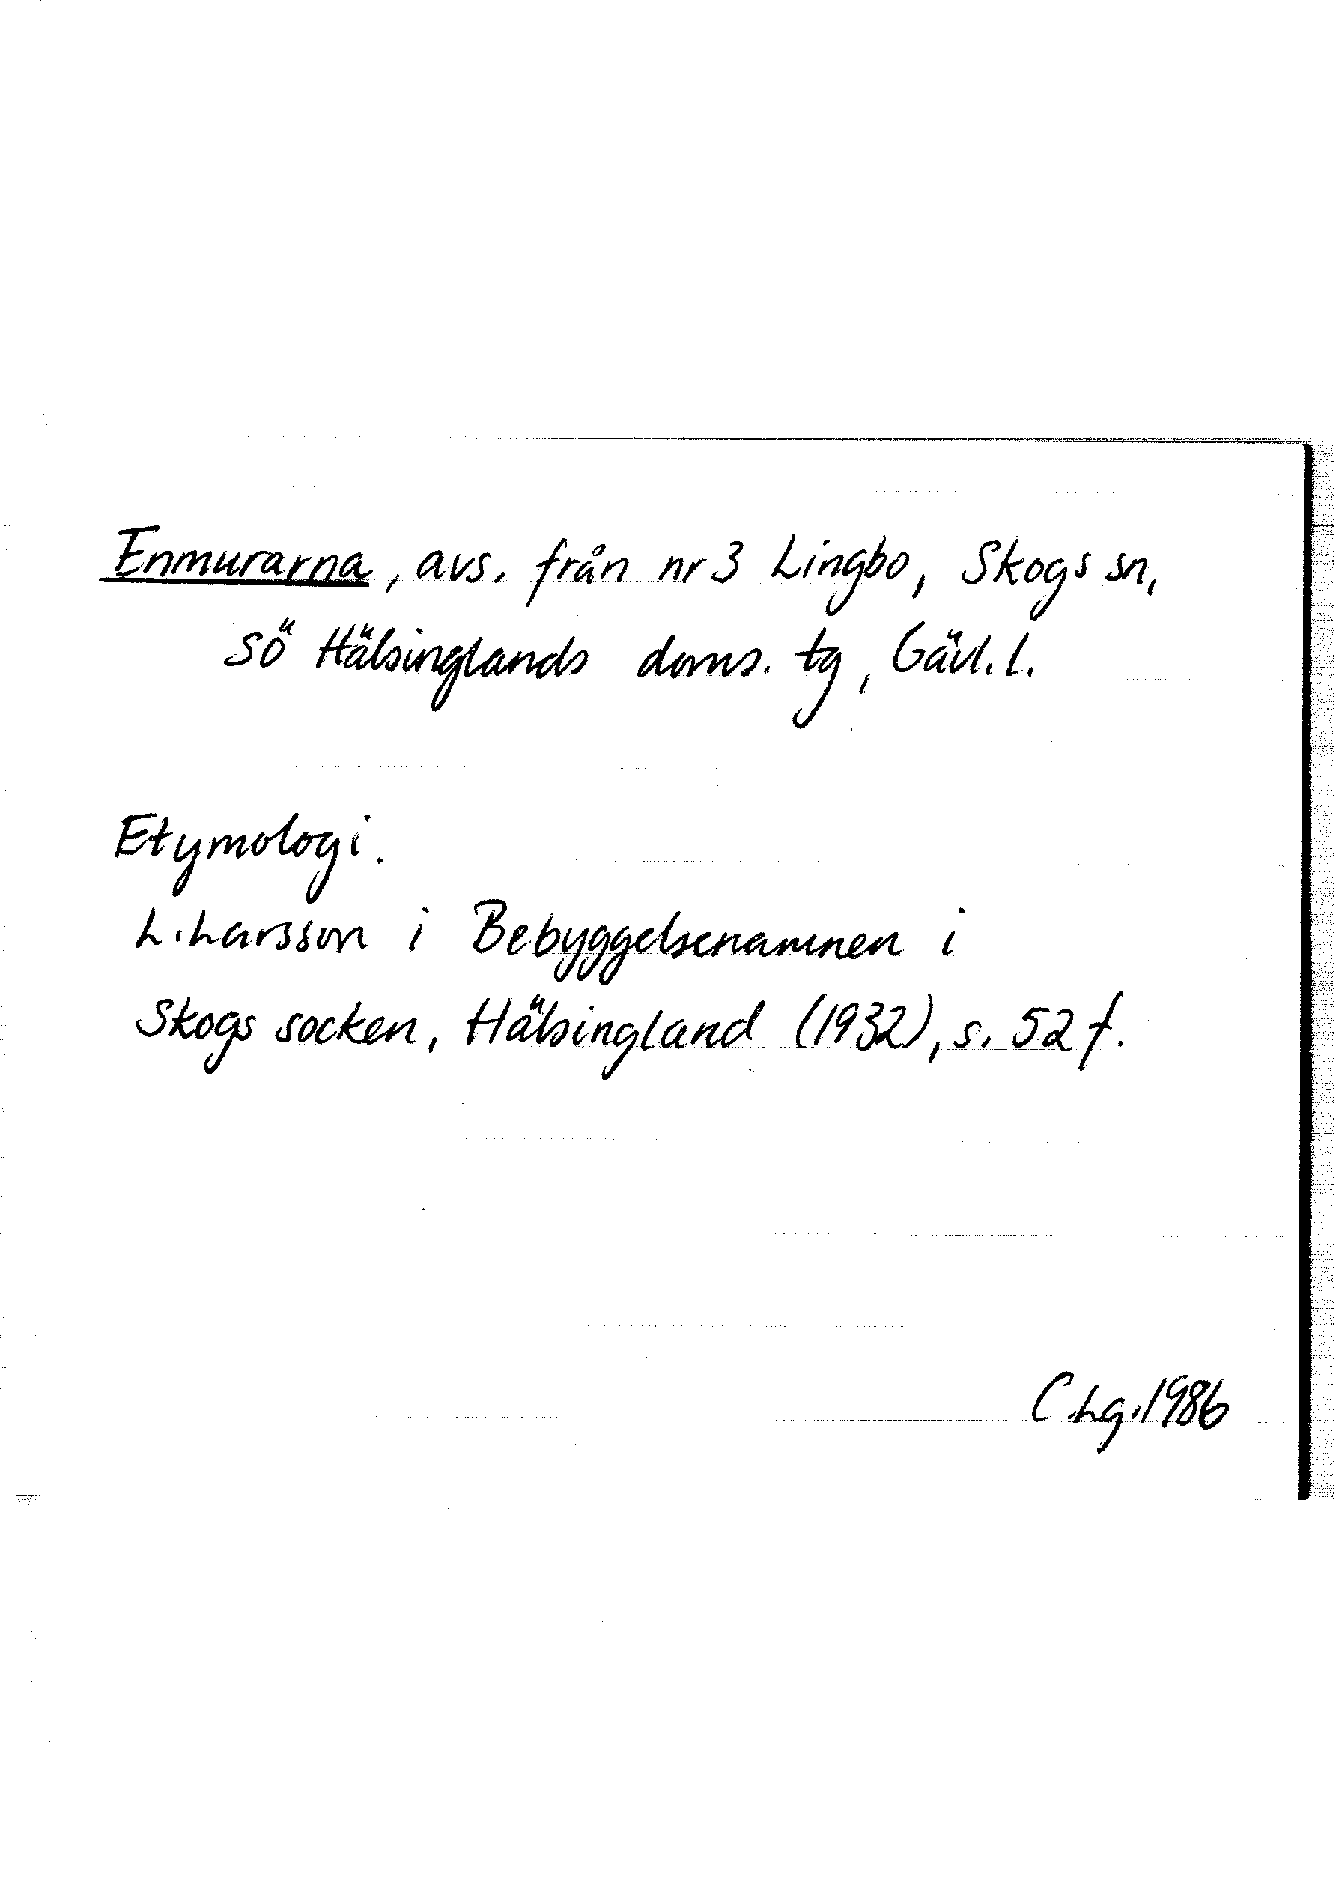 Enmurarna, avs. från nr 3 Lingbo, Skogs sn,
sö Hälsinglands doms. tg, Gävl. l.
Etymologi.
L. Larsson i Bebyggelsenamnen i
Skogs socken, Hälsingland (1932), s. 52 f.
C Lg. 1986